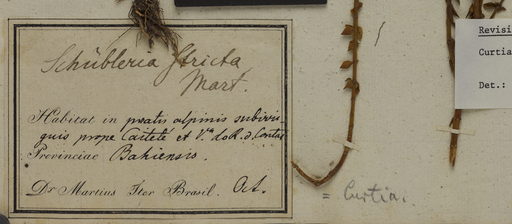 Schübleria stricta
Mart.
Habitat in pratis alpinis subirri-
guis prope Caiteté et V.ᵃ do R. d. Contas
Provinciae Bahiensis.
Dr Martius Iter Brasil. Oct.
= Curtia.
Revisi
Curtia
Det.: